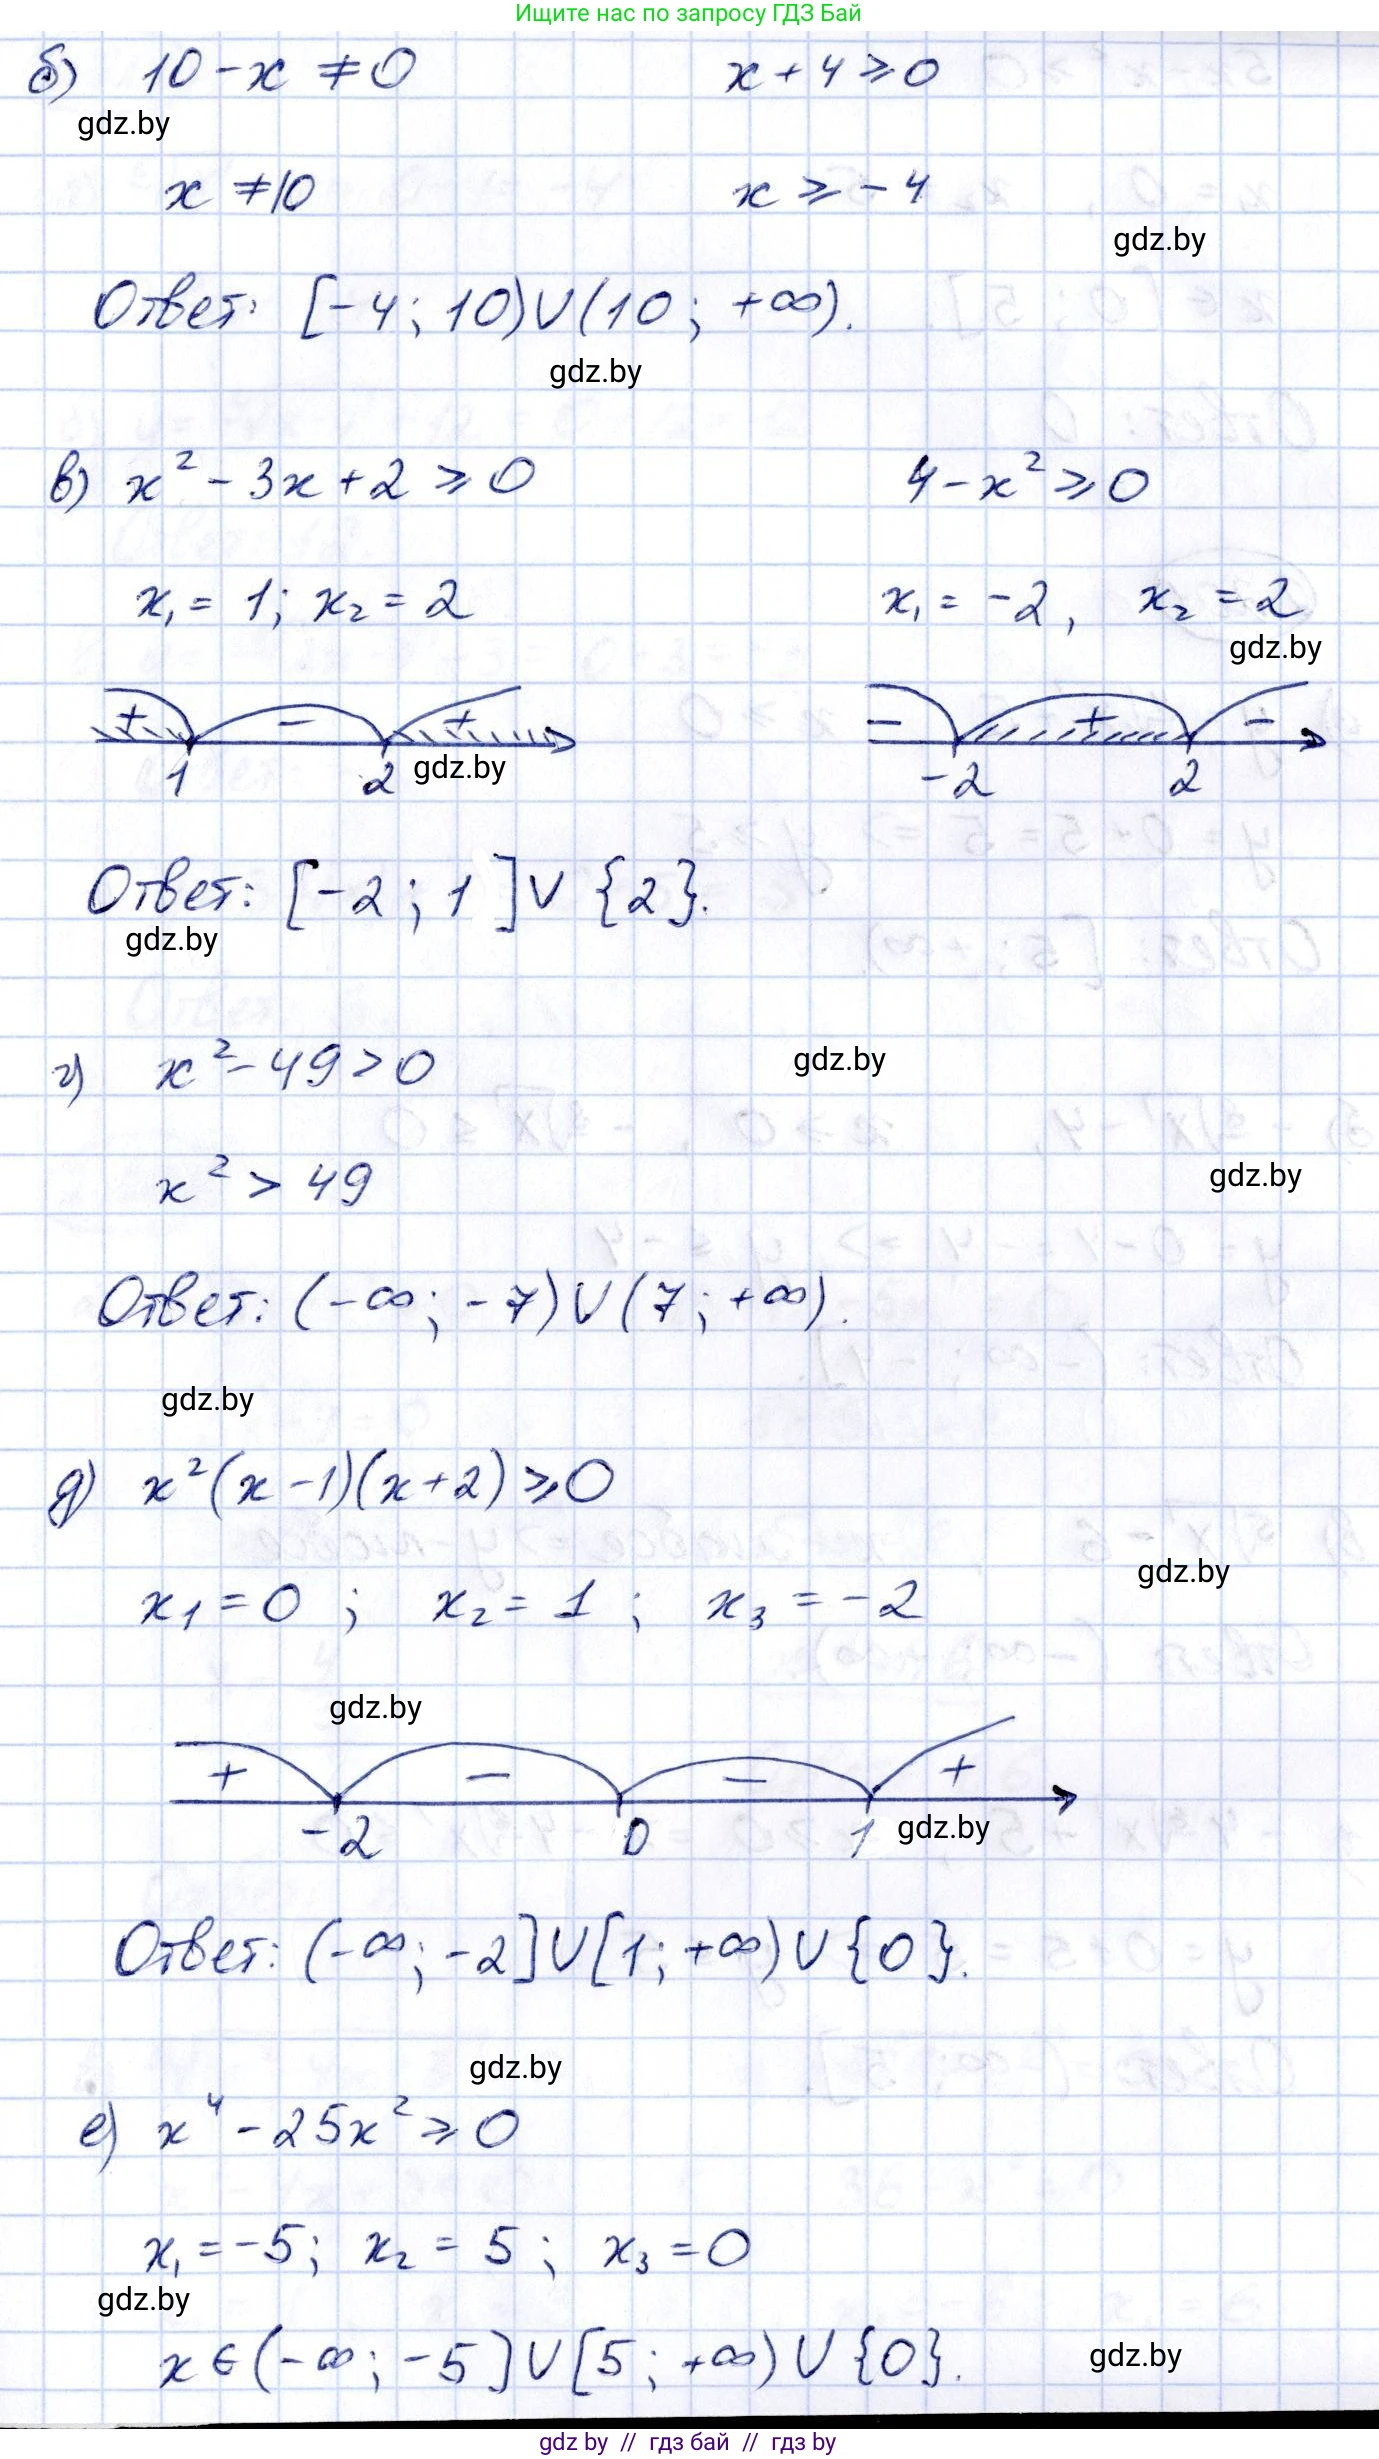 Ищите нас по запросу ГДЗ Бай
б) 10 - x ≠ 0 x + 4 ≥ 0
gdz.by
x ≠ 10 x ≥ -4
gdz.by
Ответ: [-4; 10) ∪ (10; +∞).
gdz.by
в) x² - 3x + 2 ≥ 0 4 - x² ≥ 0
x₁ = 1; x₂ = 2 x₁ = -2, x₂ = 2
gdz.by
+ - + - + -
1 2 gdz.by -2 2
Ответ: [-2; 1] ∪ {2}.
gdz.by
г) x² - 49 > 0 gdz.by
x² > 49 gdz.by
Ответ: (-∞; -7) ∪ (7; +∞).
gdz.by
д) x²(x - 1)(x + 2) ≥ 0
gdz.by
x₁ = 0; x₂ = 1; x₃ = -2
gdz.by
+ - - +
-2 0 1 gdz.by
Ответ: (-∞; -2] ∪ [1; +∞) ∪ {0}.
gdz.by
е) x⁴ - 25x² ≥ 0
x₁ = -5; x₂ = 5; x₃ = 0
gdz.by
x ∈ (-∞; -5] ∪ [5; +∞) ∪ {0}. gdz.by
gdz by // гдз бай // гдз by